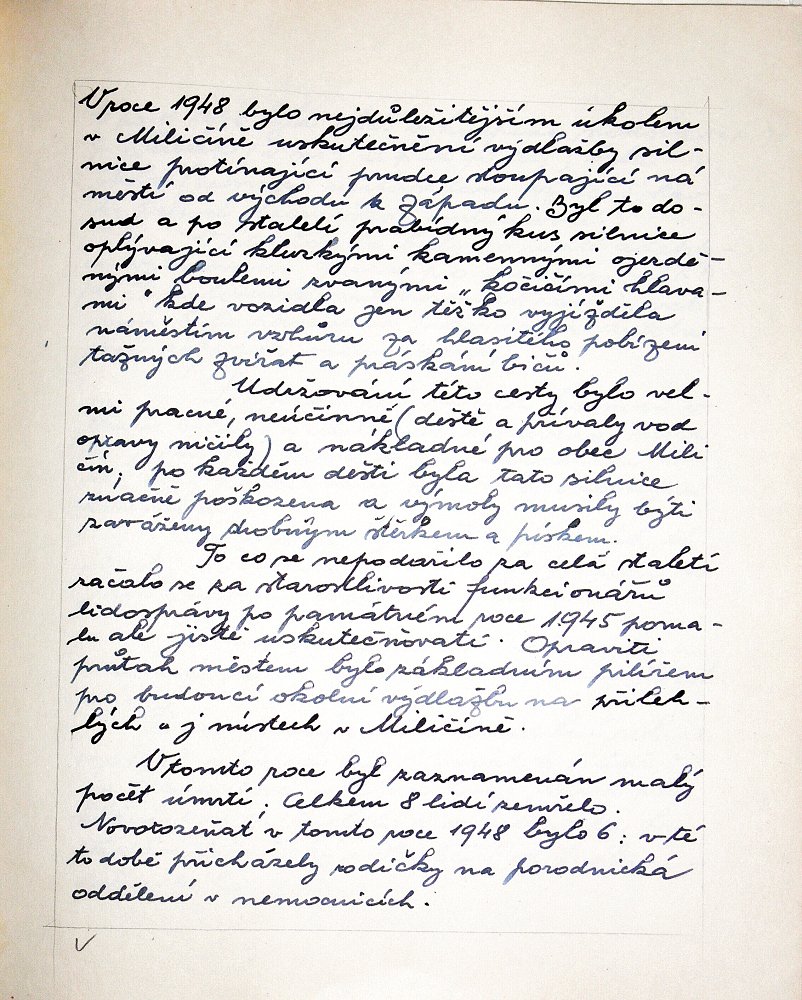 V roce 1948 bylo nejdůležitějším úkolem
v Miličíně uskutečnění výdlažby sil-
nice protínající prudce stoupající ná
městí od východu k západu. Byl to do-
sud a po staletí prabídný kus silnice
oplývající kluzkými kamennými ojezdě-
nými boulemi zvanými „kočičími hlava-
mi" kde vozidla jen těžko vyjížděla
náměstím vzhůru za hlasitého pobízení
tažných zvířat a práskání bičů.
Udržování této cesty bylo vel-
mi pracné, neúčinné (deště a přívaly vod
opravy ničily) a nákladné pro obec Mili
čín; po každém dešti byla tato silnice
značně poškozena a výmoly musily býti
zaváženy drobným štěrkem a pískem.
To co se nepodařilo za celá staletí
začalo se za starostlivosti funkcionářů
lidosprávy po památném roce 1945 poma-
lu ale jistě uskutečňovati. Opraviti
průtah městem bylo základním pilířem
pro budoucí okolní výdlažbu na přileh-
lých a j místech v Miličíně.
V tomto roce byl zaznamenán malý
počet úmrtí. Celkem 8 lidí zemřelo.
Novorozeňat v tomto roce 1948 bylo 6: v té
to době přicházely rodičky na porodnická
oddělení v nemocnicích.